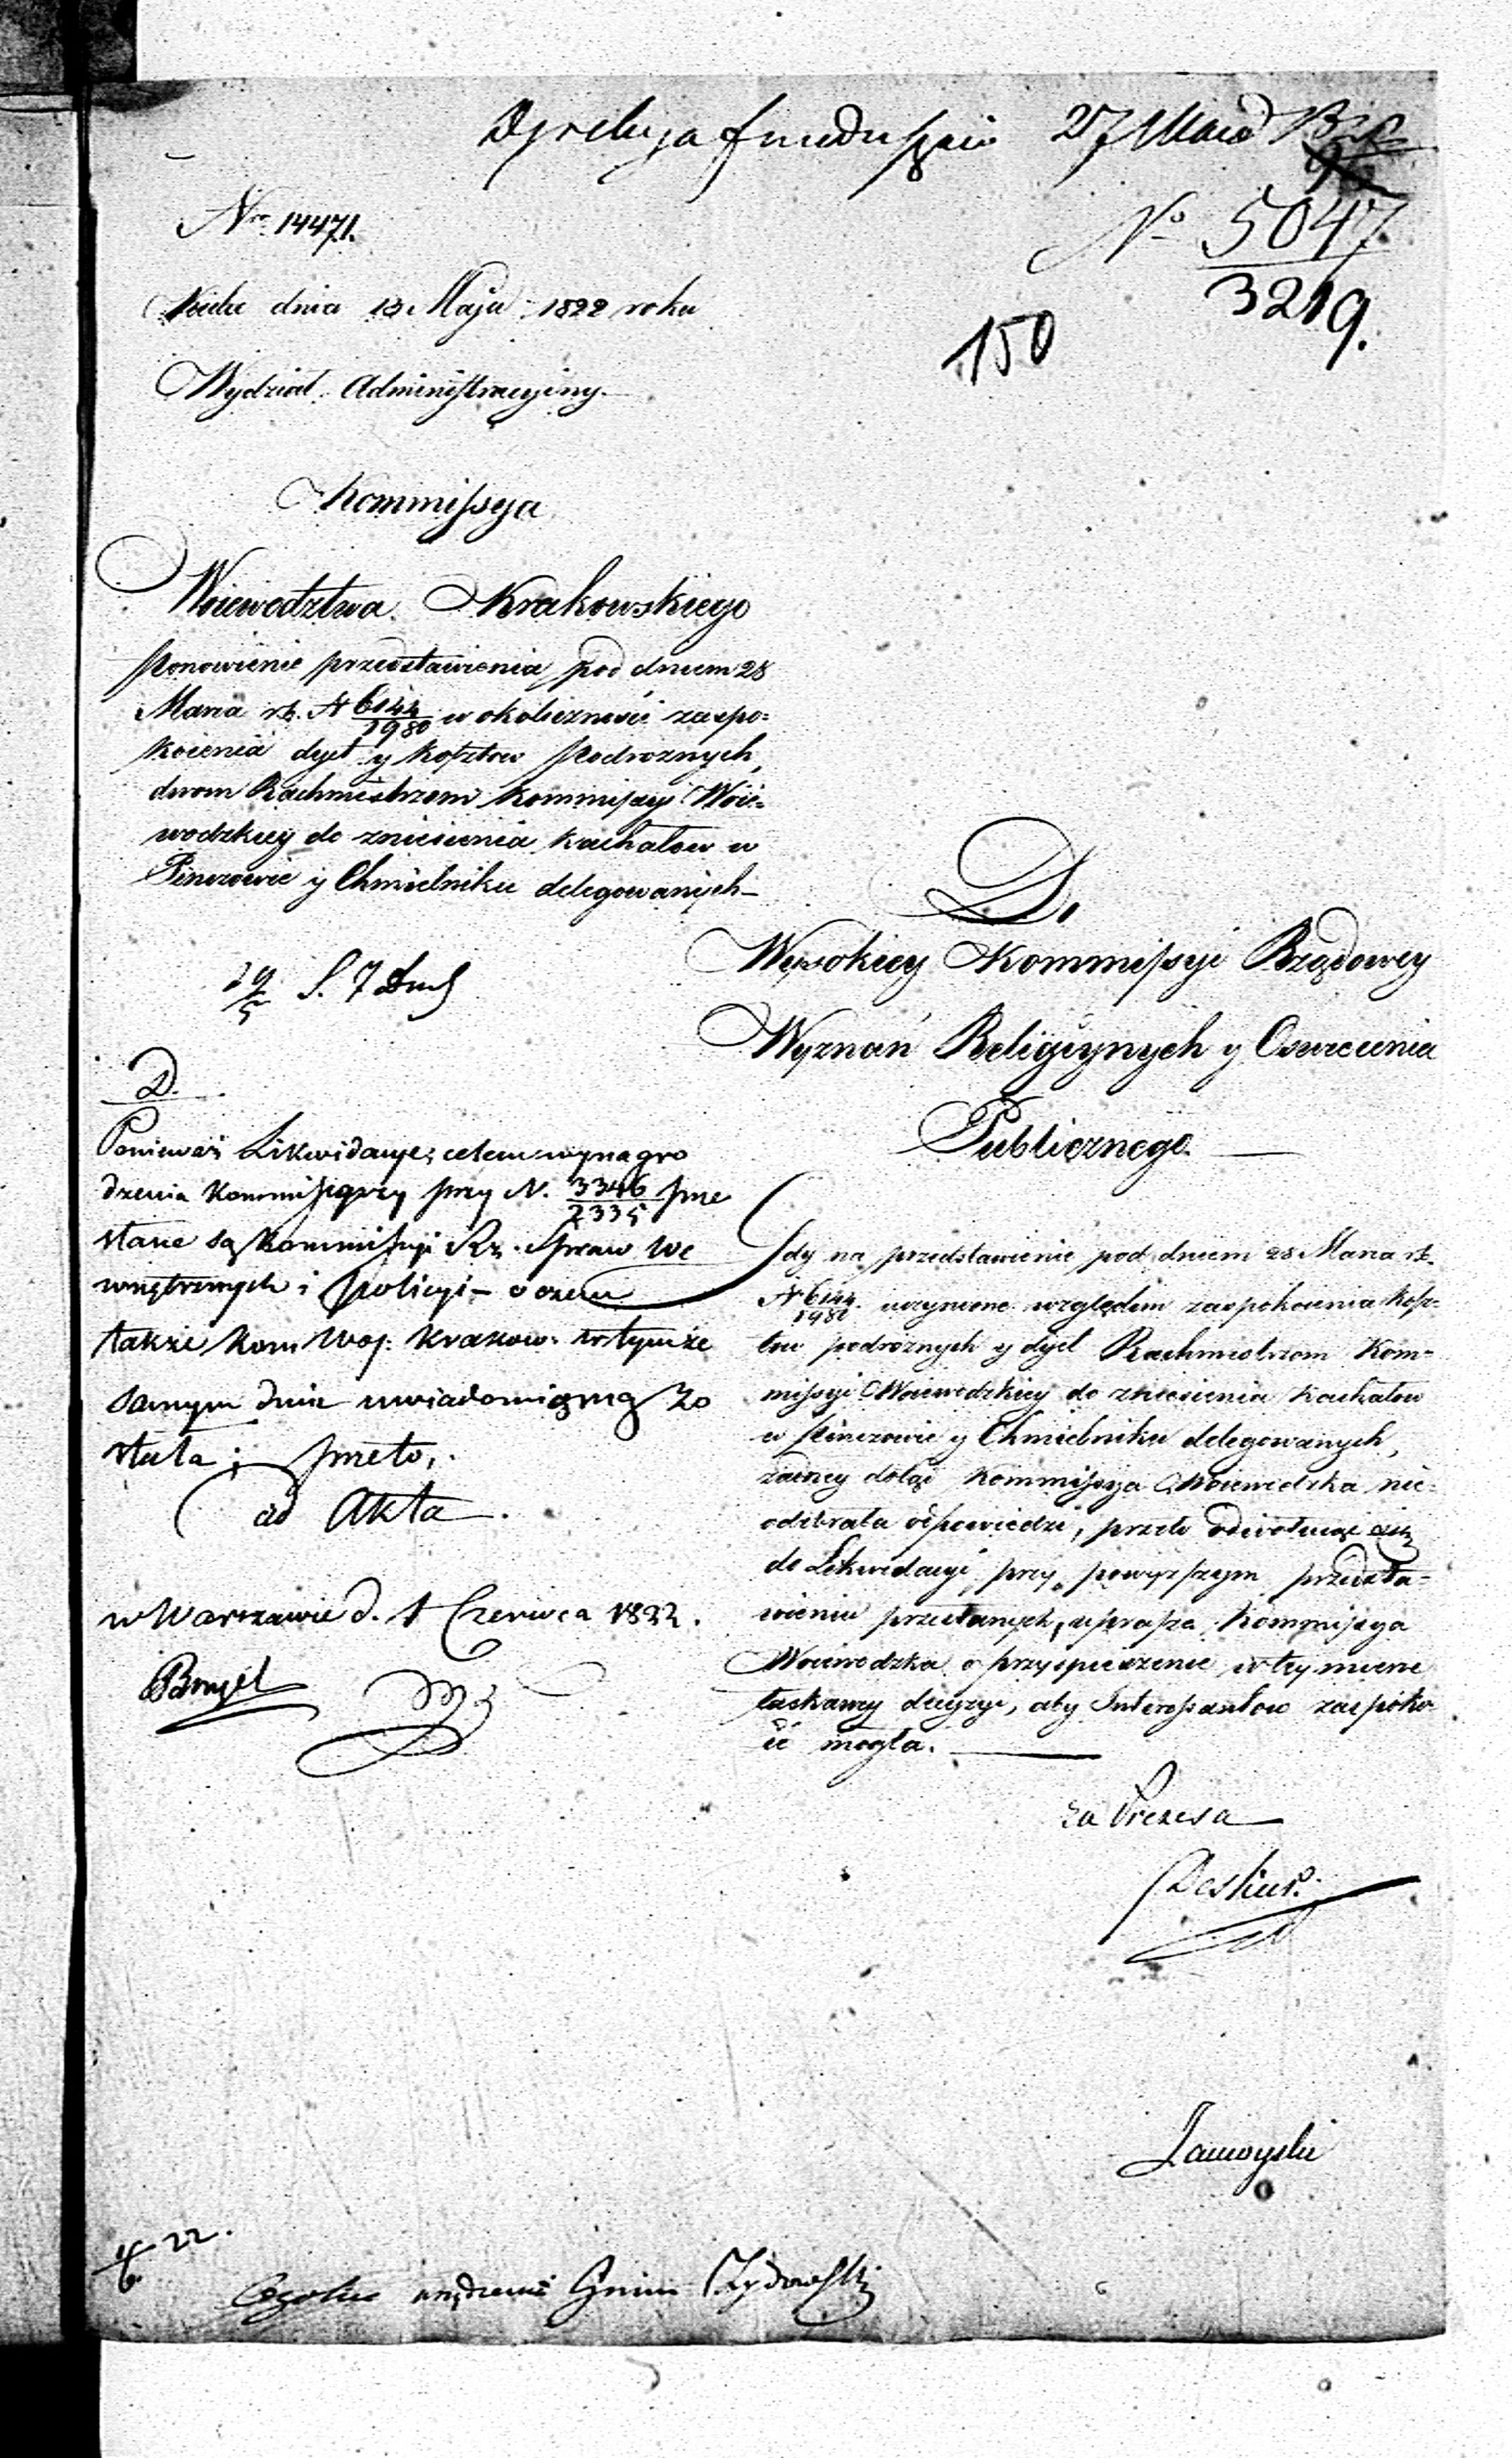 Dyrekcya funduszów 27 Maia
Nro 14471.
No 5047
3219.
150
dnia 13 Maja 1822 roku
Wydział Administracyiny.
Kommissya
Woiewodztwa Krakowskiego
Ponowienie przedstawienia pod dniem 28
Marca rb. N 6144/1980 w okoliczności zaspo=
koienia dyet y kosztow Podroznych,
dwom Rachmistrzom Kommissyi Woie=
wodzkiey do zniesienia kachałow w
Pinczowie y Chmielniku delegowanych—
29/5 S. 7
Do
Wysokiey Kommissyi Rządowey
Wyznań Religiynych y Oswiecenia
Publicznego.
Gdy na przedstawienie pod dniem 28 Marca rb.
N 6144/1980 uczynione względem zaspokoienia kosz=
tow podroznych y dyet Rachmistrzom Kom=
missyi Woiewodzkiey do zniesienia kachałow
w Pinczowie y Chmielniku delegowanych,
żadney dotąd Kommissya Woiewodzka nie=
odebrała odpowiedzi, przeto odwołuiąc się
do Likwidacyi przy powyzszym przedsta=
wieniu przesłanych, uprasza Kommissya
Woiewodzka o przyspieszenie w tey mierze
łaskawey decyzyi, aby Interessantow zaspoko
ić mogła.
za Prezesa
Deskur.
Zamoyski
D.
Ponieważ Likwidacye, celem wynagro
dzenia kommissarzy przy N. 3346/2335 prze
słane są Kommissyi Rz. Spraw We
wnętrznych i Policyi – o czem
także Kom Woj. Krakow. w tymże
samym dniu uwiadomioną zo
stała; przeto,
ad Akta.
w Warszawie d. 1 Czerwca 1822.
4/6 22.
Ogolne urządzenie Gmin Żydowski